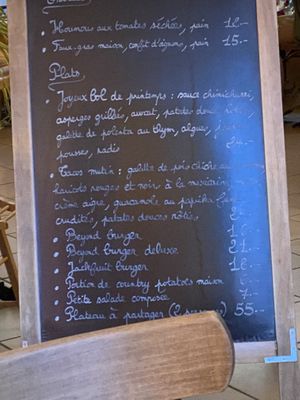 • Houmous aux tomates séchées, pain 12.-
• Faux-gras maison, confit d'oignons, pain 15.-
Plats
• Joyeux bol de printemps : sauce chimichurri,
asperges grillées, avocat, patates douces rôties,
galette de polenta au thym, algues,
pousses, radis
• Tacos mutin : galette de pois chiche
haricots rouges et noirs à la mexicaine,
crème aigre, guacamole au paprika
crudités, patates douces rôties
• Beyond burger
• Beyond burger deluxe 21.-
• Jackfruit burger
• Portion de country potatoes maison
• Petite salade composée 7.-
• Plateau à partager (2 personnes) 55.-